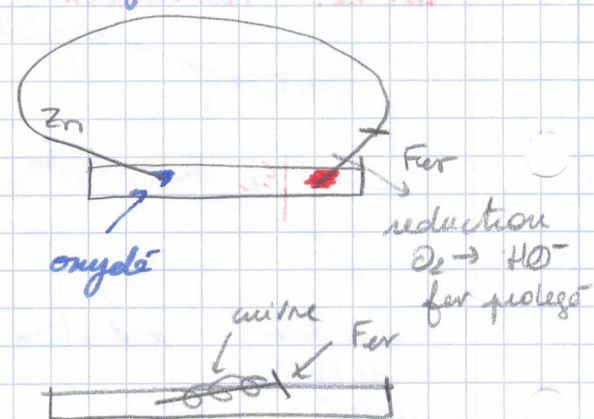 Zn
Fer
oxydé
réduction
O₂ → HO⁻
fer protégé
cuivre
Fer